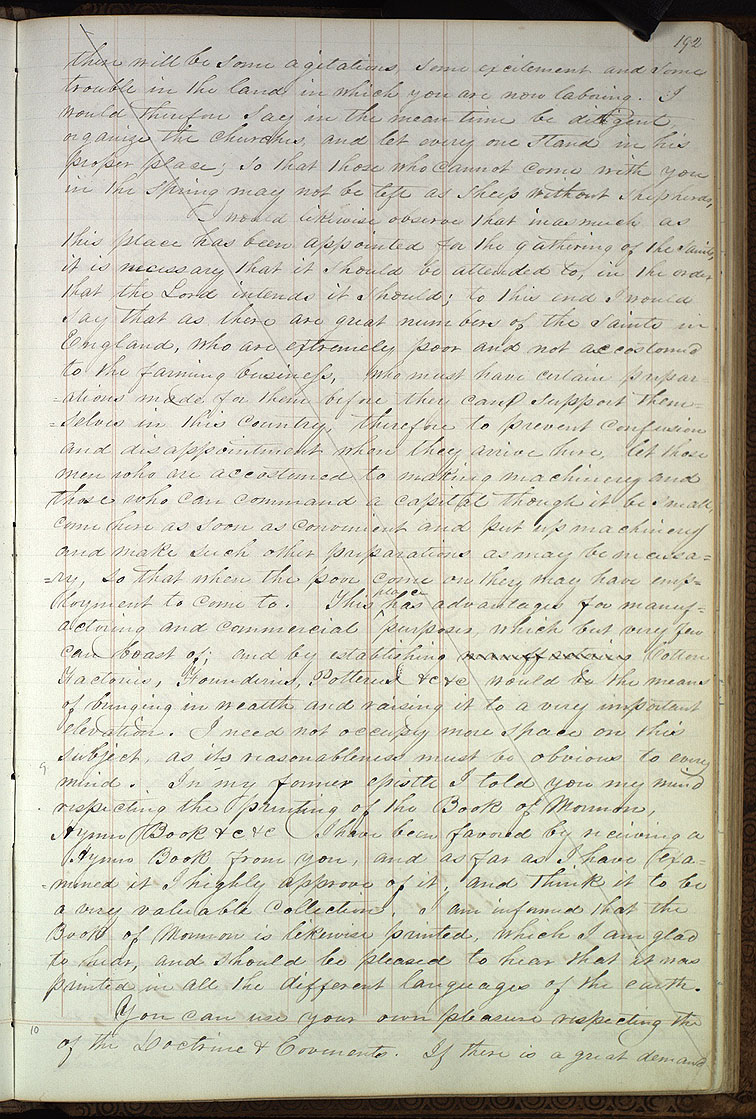 192
there will be some agitations, some excitement and some
trouble in the land in which you are now laboring. I
would therefore say in the mean time be diligent
organize the churches, and let every one stand in his
proper place; so that those who cannot come with you
in the spring may not be left as sheep without shepherds,
I would likewise observe that inasmuch as
this place has been appointed for the gathering of the saints
it is necessary that it should be attended to, in the order
that the Lord intends it should; to this end I would
say that as there are great numbers of the saints in
England, who are extremely poor and not accostomed
to the farming business, who must have certain prepar-
=ations made for them before they can support them=
=selves in this country, therefore to prevent confusion
and disappointment when they arrive here, let those
men who are accostomed to making machinery and
those who can command a capital though it be small,
come here as soon as convenient and put up machinery
and make such other preparations as may be necessa=
=ry, so that when the poor come on they may have emp=
loyment to come to. This place has advantages for manuf=
actoring and commercial purposes, which but very few
can boast of; and by establishing Cotton
Factories, Founderies, Potteries &c &c would be the means
of bringing in wealth and raising it to a very important
elevation. I need not occupy more space on this
subject, as its reasonableness must be obvious to every
9 mind. In my former epistle I told you my mind
respecting the printing of the Book of Mormon,
Hymn Book &c &c I have been favored by receiving a
Hymn Book from you, and as far as I have exa=
=mined it I highly approve of it, and think it to be
a very valuable collection. I am informed that the
Book of Mormon is likewise printed, which I am glad
to hear, and should be pleased to hear that it was
printed in all the different languages of the earth.
You can use your own pleasure respecting the
10 of the Doctrine & Covenents. If there is a great demand